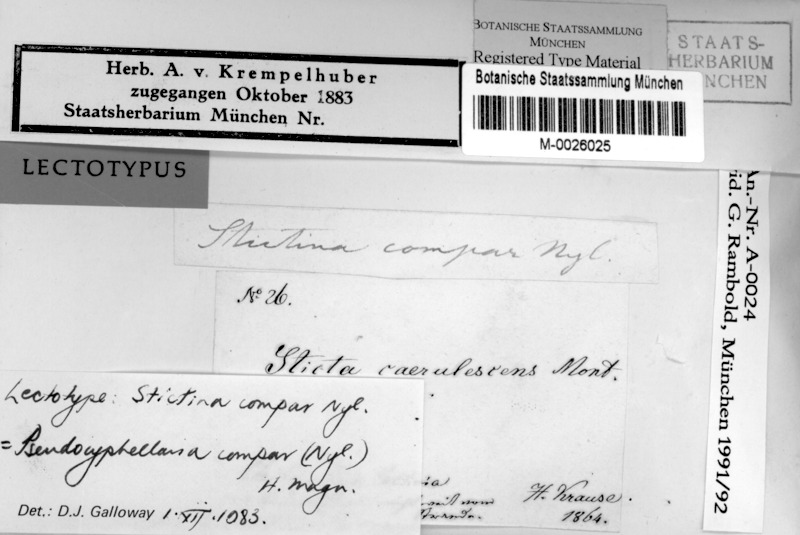 BOTANISCHE STAATSSAMMLUNG
MÜNCHEN
Registered Type Material
STAATS-
HERBARIUM
MÜNCHEN
Herb. A. v. Krempelhuber
zugegangen Oktober 1883
Staatsherbarium München Nr.
Botanische Staatssammlung München
M-0026025
LECTOTYPUS
An.-Nr. A-0024
rid. G. Rambold, München 1991/92
Stictina compar Nyl.
No 26.
Sticta caerulescens Mont.
H. Krause.
1864.
Lectotype: Stictina compar Nyl.
= Pseudocyphellaria compar (Nyl.)
H. Magn.
Det.: D.J. Galloway 1.XII.1983.